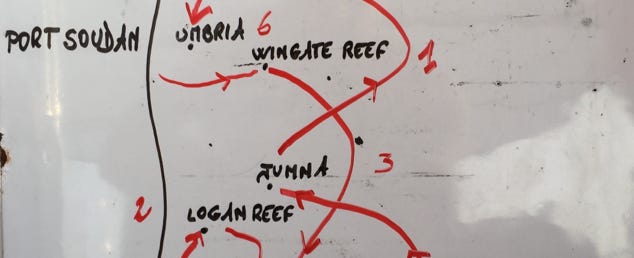 PORT SOUDAN
UMBRIA 6
WINGATE REEF
1
JUMNA
3
2
LOGAN REEF